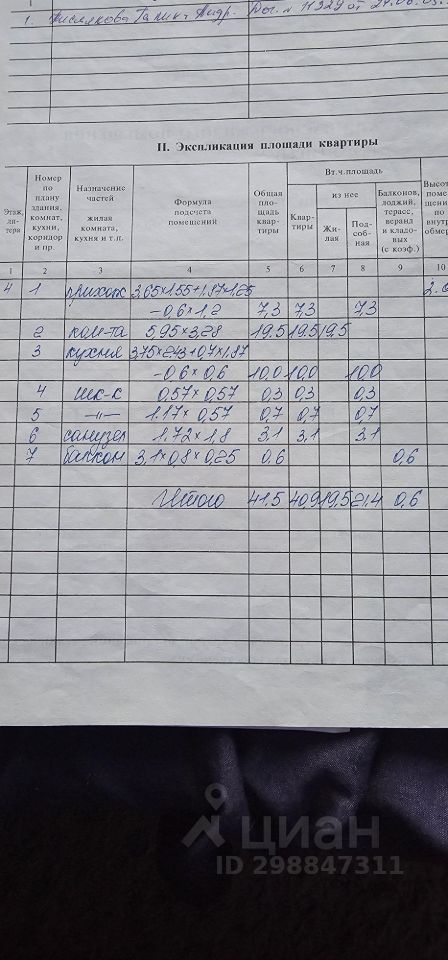 1. Кислякова Галина Андр. Дог. № 11929 от
II. Экспликация площади квартиры
Этаж, литера
Номер по плану здания, комнат, кухни, коридор и пр.
Назначение частей жилая комната, кухня и т.п.
Формула подсчета помещений
Общая площадь квартиры
Вт.ч.площадь
Квартиры
из нее
Жилая
Подсобная
Балконов, лоджий, террас, веранд и кладовых (с коэф.)
Высота помещений по внутр обмер
1 2 3 4 5 6 7 8 9 10
4 1 прихож 3,65×1,55+1,87×1,25
-0,6×1,2 7,3 7,3 7,3
2 ком-та 5,95×3,28 19,5 19,5 19,5
3 кухня 3,75×2,43+0,7×1,87
-0,6×0,6 10,0 10,0 10,0
4 шк-к 0,57×0,57 0,3 0,3 0,3
5 -"- 1,17×0,57 0,7 0,7 0,7
6 санузел 1,72×1,8 3,1 3,1 3,1
7 балкон 3,1×0,8×0,25 0,6 0,6
Итого 41,5 40,9 19,5 21,4 0,6
циан
ID 298847311